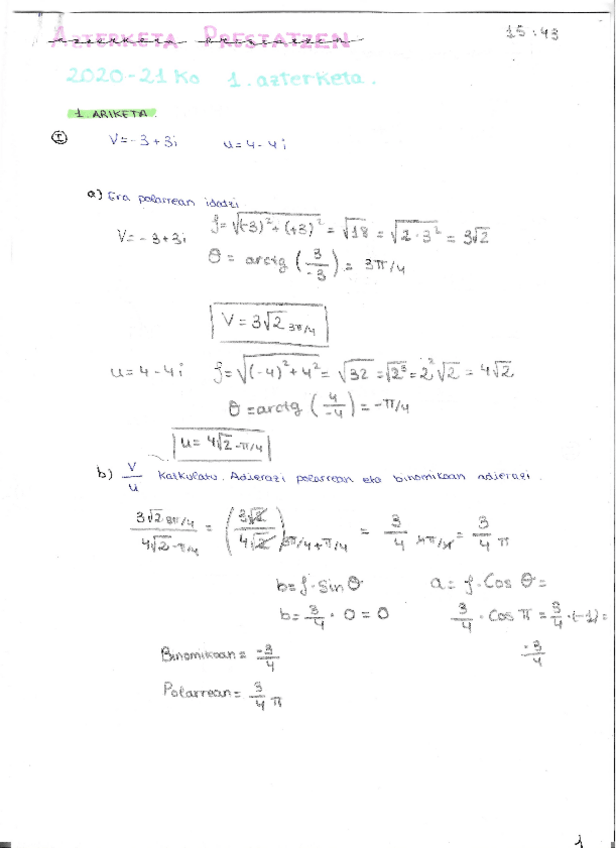 AZTERKETA PRESTATZEN
15:43
2020-21 Ko 1. azterketa.
1. ARIKETA.
I V=-3+3i u=4-4i
a) Era polarrean idatzi
V=-3+3i ρ=√(-3)²+(+3)² = √18 = √2·3² = 3√2
θ = arctg (3/-3) = 3π/4
V=3√2 3π/4
u=4-4i ρ=√(-4)²+4² = √32 = √2⁵ = 2²√2 = 4√2
θ = arctg (4/-4) = -π/4
u=4√2 -π/4
b) V/u kalkulatu. Adierazi polarrean eta binomikoan adierazi.
3√2 3π/4 / 4√2 -π/4 = (3√2/4√2) 3π/4+π/4 = 3/4 4π/4 = 3/4 π
b=ρ·sin θ a=ρ·Cos θ=
b=3/4·0=0 3/4·Cos π=3/4·(-1)=
Binomikoan = -3/4 -3/4
Polarrean = 3/4 π
1